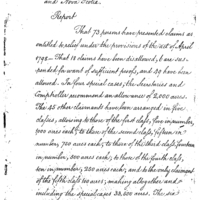 and Nova Scotia.
Report
That 73 persons have presented claims as
entitled to relief under the provisions of the act of April
1798— That 18 claims have been disallowed, 6 are sus-
pended for want of sufficient proofs, and 49 have been
allowed. In four special cases, the Secretaries and
Comptroller recommend an allowance of 2,000 acres.
The 45 other claimants have been arranged in five
classes, allowing to those of the first class, five in number,
900 acres each; to those of the second class, fifteen in
number, 720 acres each; to those of the third class, fourteen
in number, 500 acres each; to those of the fourth class,
ten in number, 320 acres each; and to the only claimant
of the fifth class 160 acres; making altogether, and
including the special cases 33,500 acres. The six